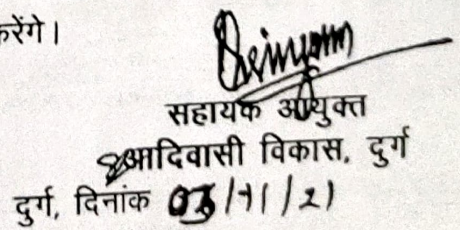 करेंगे।
सहायक आयुक्त
आदिवासी विकास, दुर्ग
दुर्ग, दिनांक 03/11/21